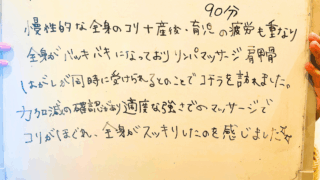 90分
慢性的な全身のコリ+産後・育児の疲労も重なり
全身がバッキバキになっておりリンパマッサージ肩甲骨
はがしが同時に受けられるとのことでコチラを訪れました。
力加減の確認があり適度な強さでのマッサージで
コリがほぐれ、全身がスッキリしたのを感じました